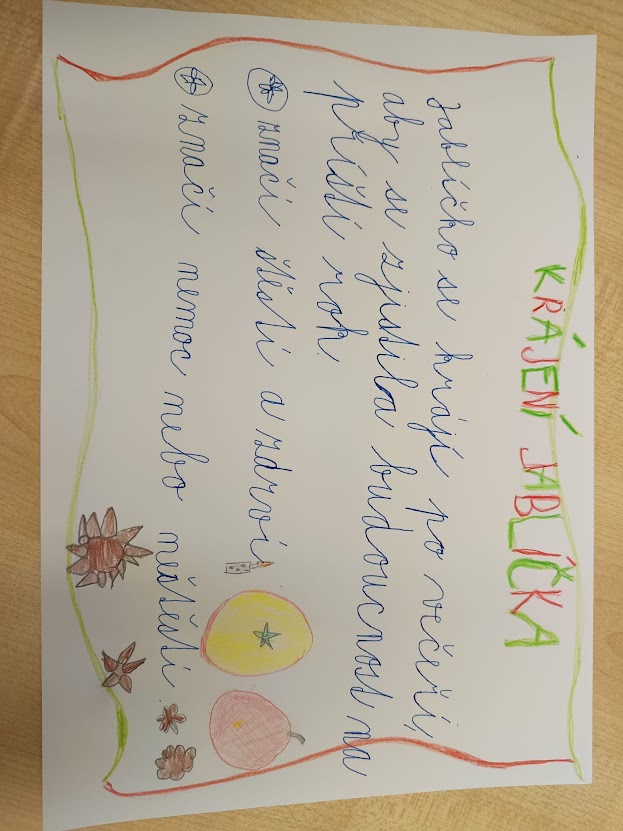 KRÁJENÍ JABLÍČKA
Jablíčko se krájí po večeři,
aby se zjistila budoucnost na
příští rok.
značí štěstí a zdrví
značí nemoc nebo neštěstí.